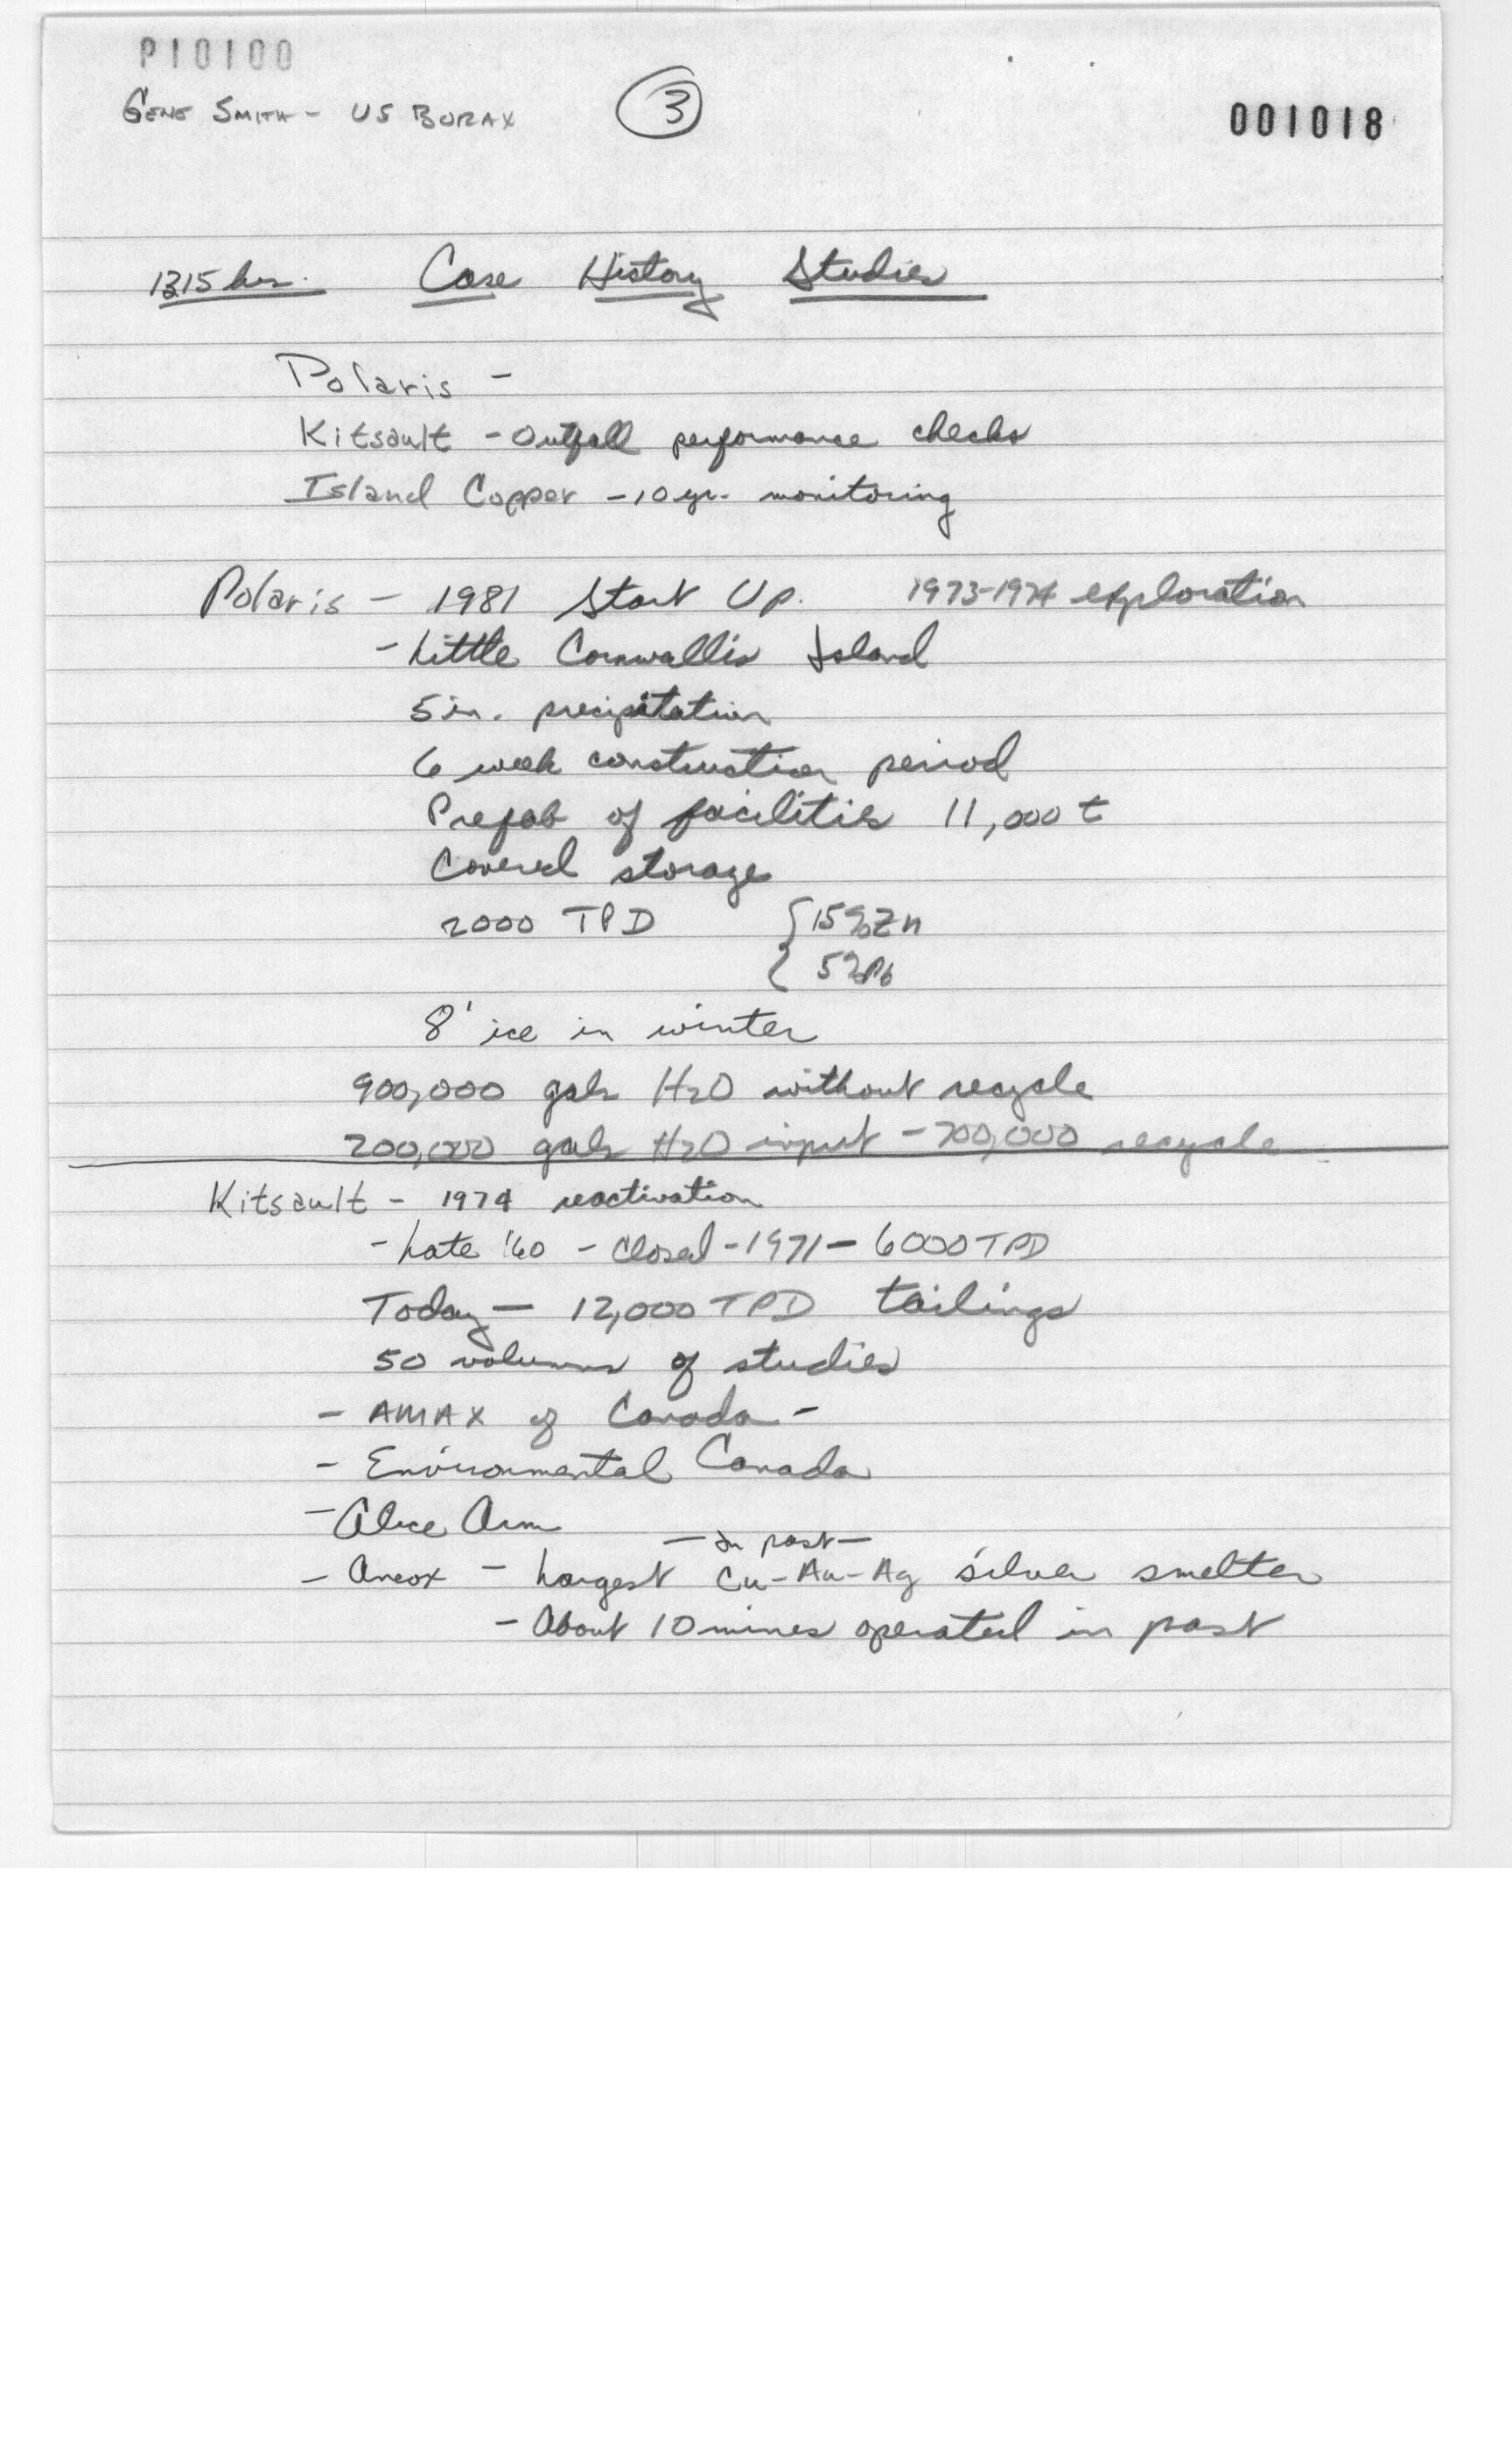 P10100
GENE SMITH - US BORAX
3
001018
1315 hrs. Case History Studies
Polaris -
Kitsault - Outfall performance checks
Island Copper - 10 yr. monitoring
Polaris - 1981 Start Up. 1973-1974 exploration
- Little Cornwallis Island
5 in. precipitation
6 week construction period
Prefab of facilities 11,000 t
Covered storage
2000 TPD { 15% Zn
{ 5% Pb
8' ice in winter
900,000 gals H2O without recycle
200,000 gals H2O input - 700,000 recycle
Kitsault - 1974 reactivation
- Late '60 - Closed - 1971 - 6000 TPD
Today - 12,000 TPD tailings
50 volumes of studies
- AMAX of Canada -
- Environmental Canada
- Alice Arm
- in past -
- Largest Cu-Au-Ag silver smelter
- About 10 mines operated in past